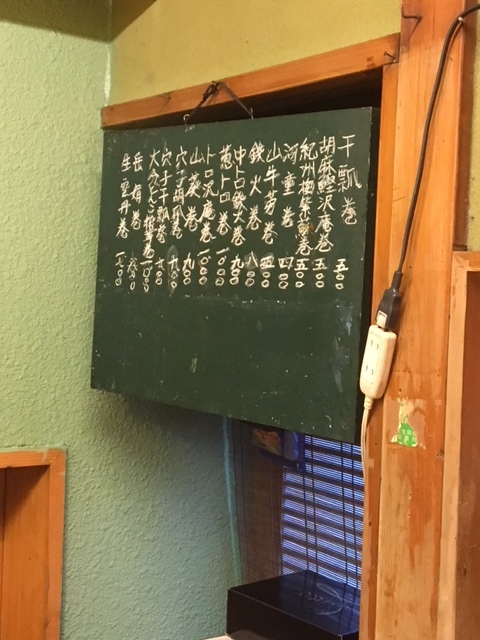 干瓢巻 五〇〇
胡麻鰹沢庵巻 五〇〇
紀州梅紫蘇巻 五〇〇
河童巻 四〇〇
山牛蒡巻 五〇〇
鉄火巻 八〇〇
中トロ鉄火巻 九〇〇
葱トロ巻 一、〇〇〇
トロ沢庵巻 一、〇〇〇
山葵巻 九〇〇
穴子胡瓜巻 九〇〇
穴子干瓢巻
巻 一、〇〇〇
巻
生雲丹巻